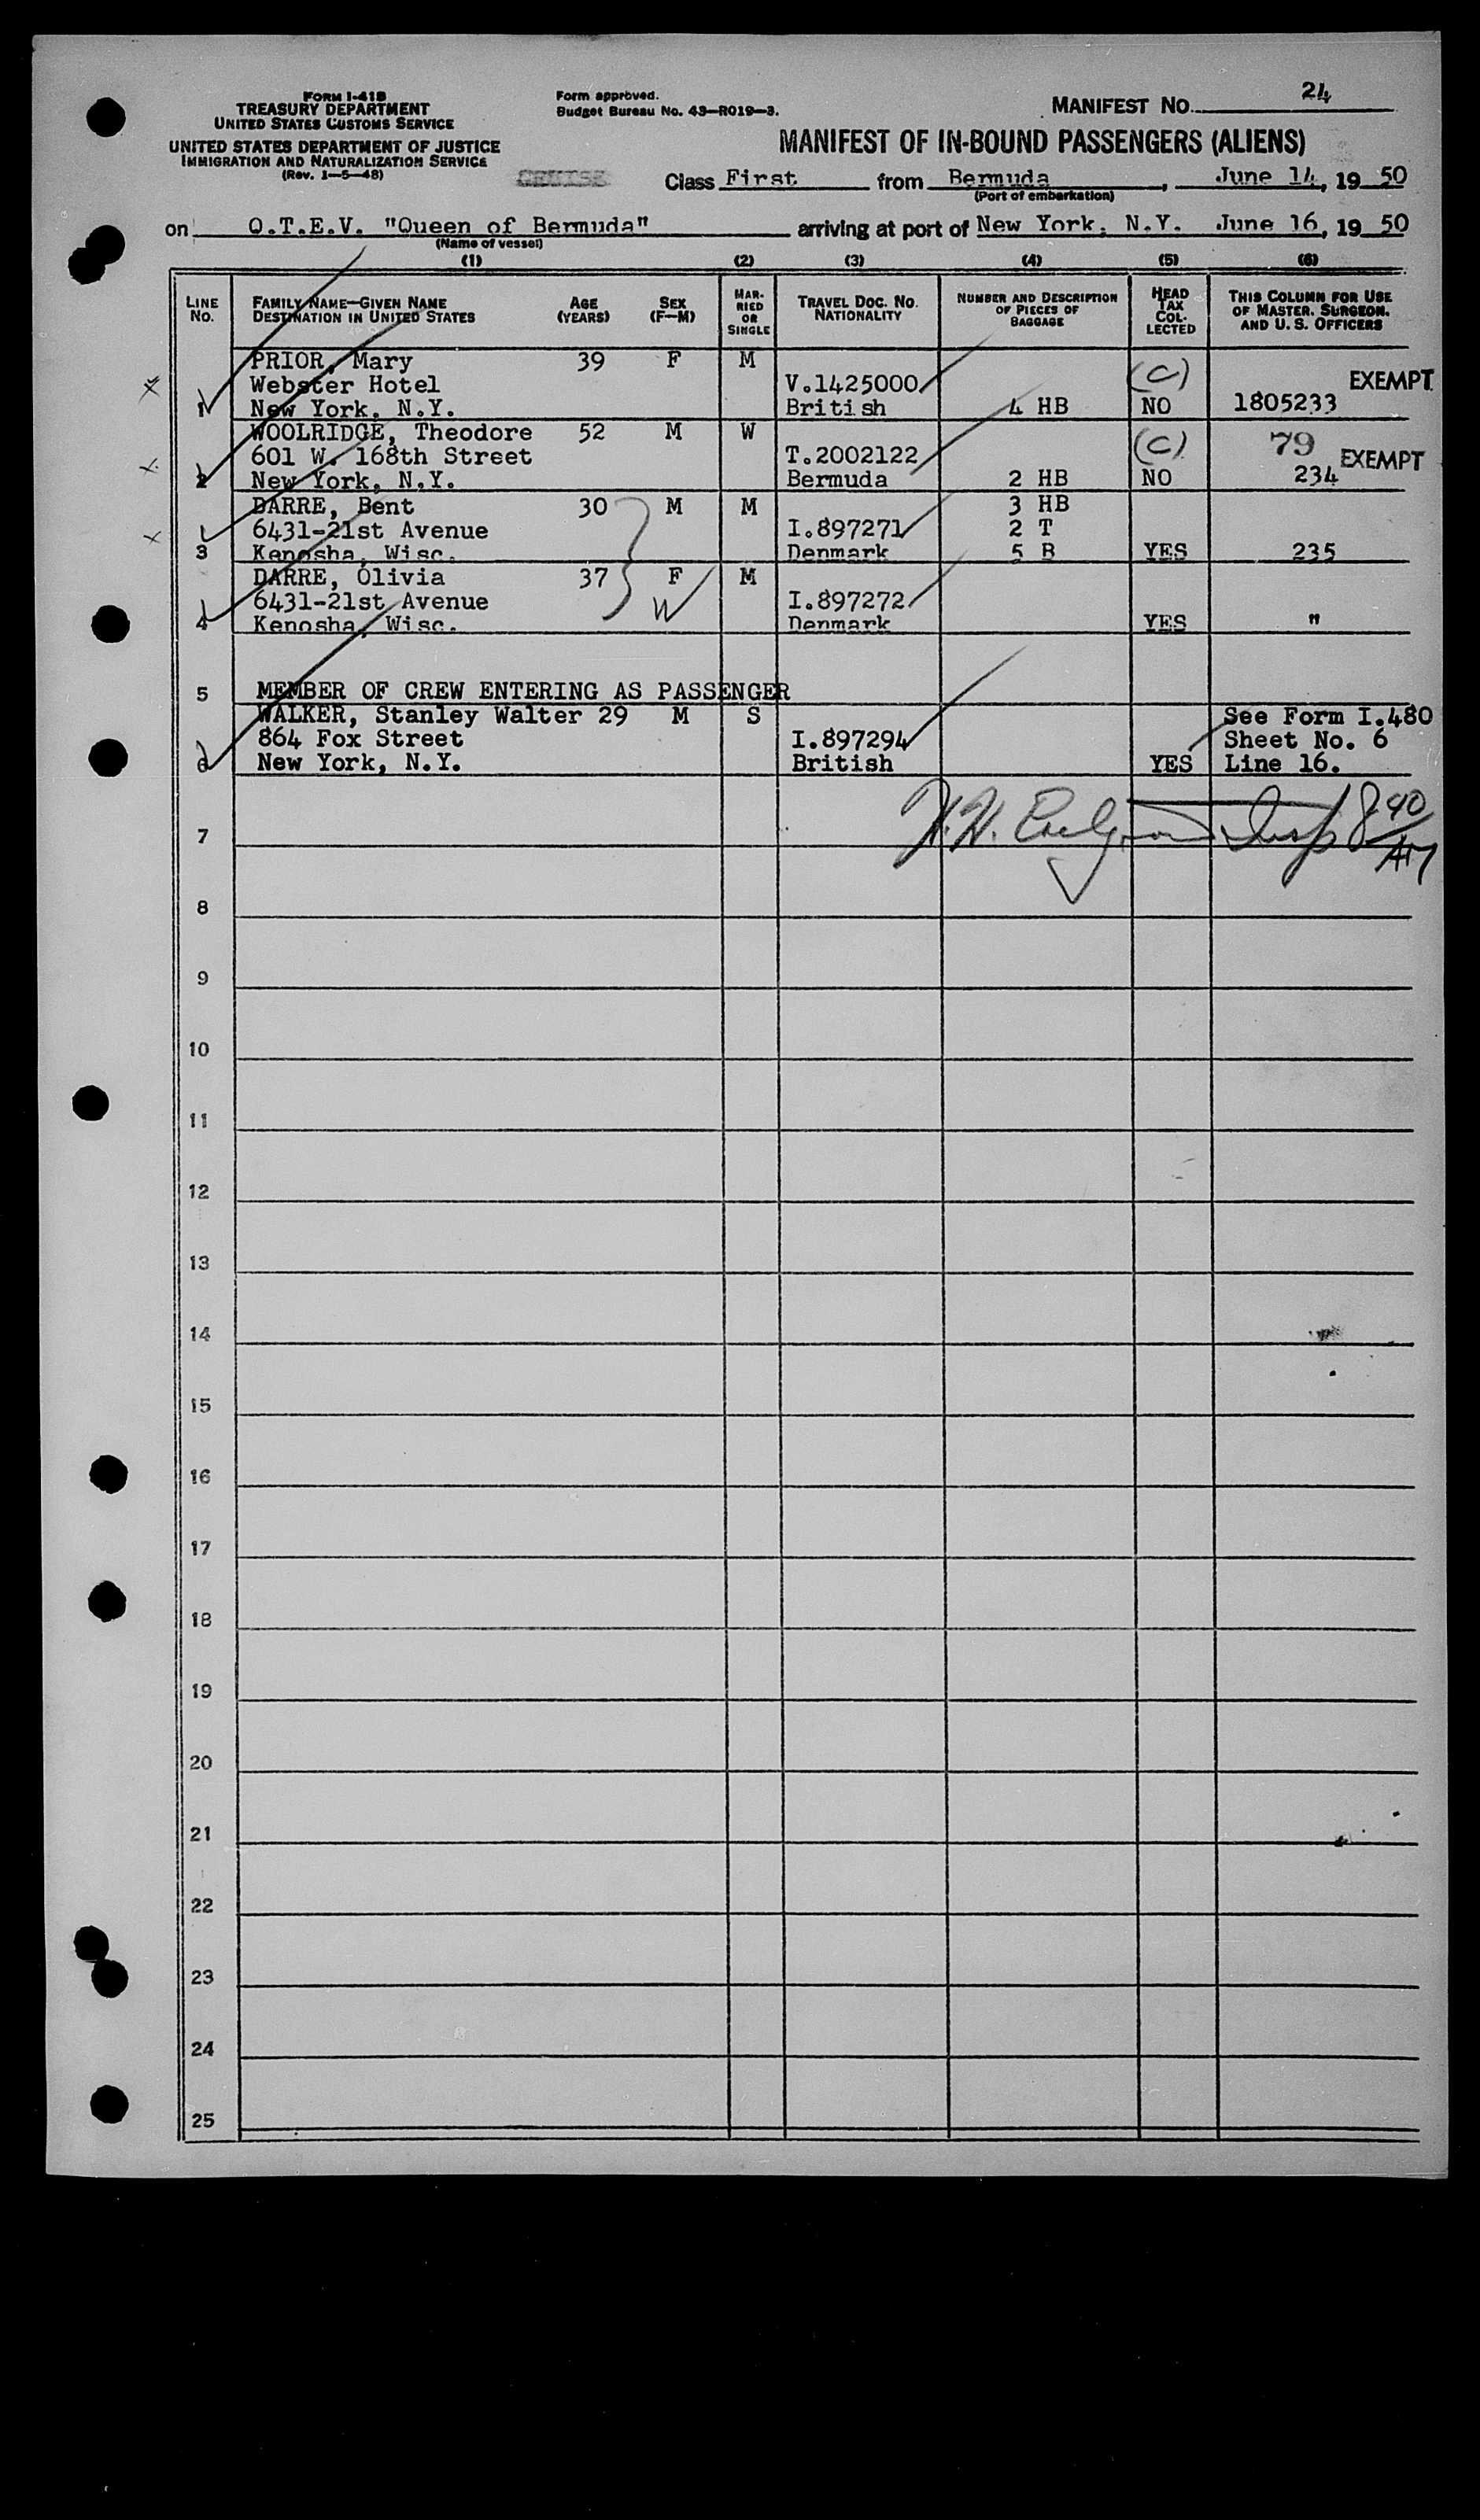 FORM I-418
TREASURY DEPARTMENT
UNITED STATES CUSTOMS SERVICE
UNITED STATES DEPARTMENT OF JUSTICE
IMMIGRATION AND NATURALIZATION SERVICE
(Rev. 1-5-48)
Form approved.
Budget Bureau No. 43-R019-3.
MANIFEST NO. 24
MANIFEST OF IN-BOUND PASSENGERS (ALIENS)
CRUISE Class First from Bermuda, June 14, 19 50
(Port of embarkation)
on Q.T.E.V. "Queen of Bermuda" arriving at port of New York, N.Y. June 16, 19 50
(Name of vessel)
(1) (2) (3) (4) (5) (6)
LINE NO. FAMILY NAME—GIVEN NAME DESTINATION IN UNITED STATES AGE (YEARS) SEX (F—M) MARRIED OR SINGLE TRAVEL DOC. NO. NATIONALITY NUMBER AND DESCRIPTION OF PIECES OF BAGGAGE HEAD TAX COLLECTED THIS COLUMN FOR USE OF MASTER, SURGEON, AND U. S. OFFICERS
PRIOR, Mary 39 F M
x Webster Hotel V.1425000 (C) EXEMPT
1 New York, N.Y. British 4 HB NO 1805233
WOOLRIDGE, Theodore 52 M W
x 601 W. 168th Street T.2002122 (C) 79 EXEMPT
2 New York, N.Y. Bermuda 2 HB NO 234
DARRE, Bent 30 M M 3 HB
x 6431-21st Avenue I.897271 2 T
3 Kenosha, Wisc. Denmark 5 B YES 235
DARRE, Olivia 37 F M
6431-21st Avenue W I.897272
4 Kenosha, Wisc. Denmark YES "
5 MEMBER OF CREW ENTERING AS PASSENGER
WALKER, Stanley Walter 29 M S See Form I.480
864 Fox Street I.897294 Sheet No. 6
6 New York, N.Y. British YES Line 16.
7 H.H. Insp 8 40/AM
8
9
10
11
12
13
14
15
16
17
18
19
20
21
22
23
24
25